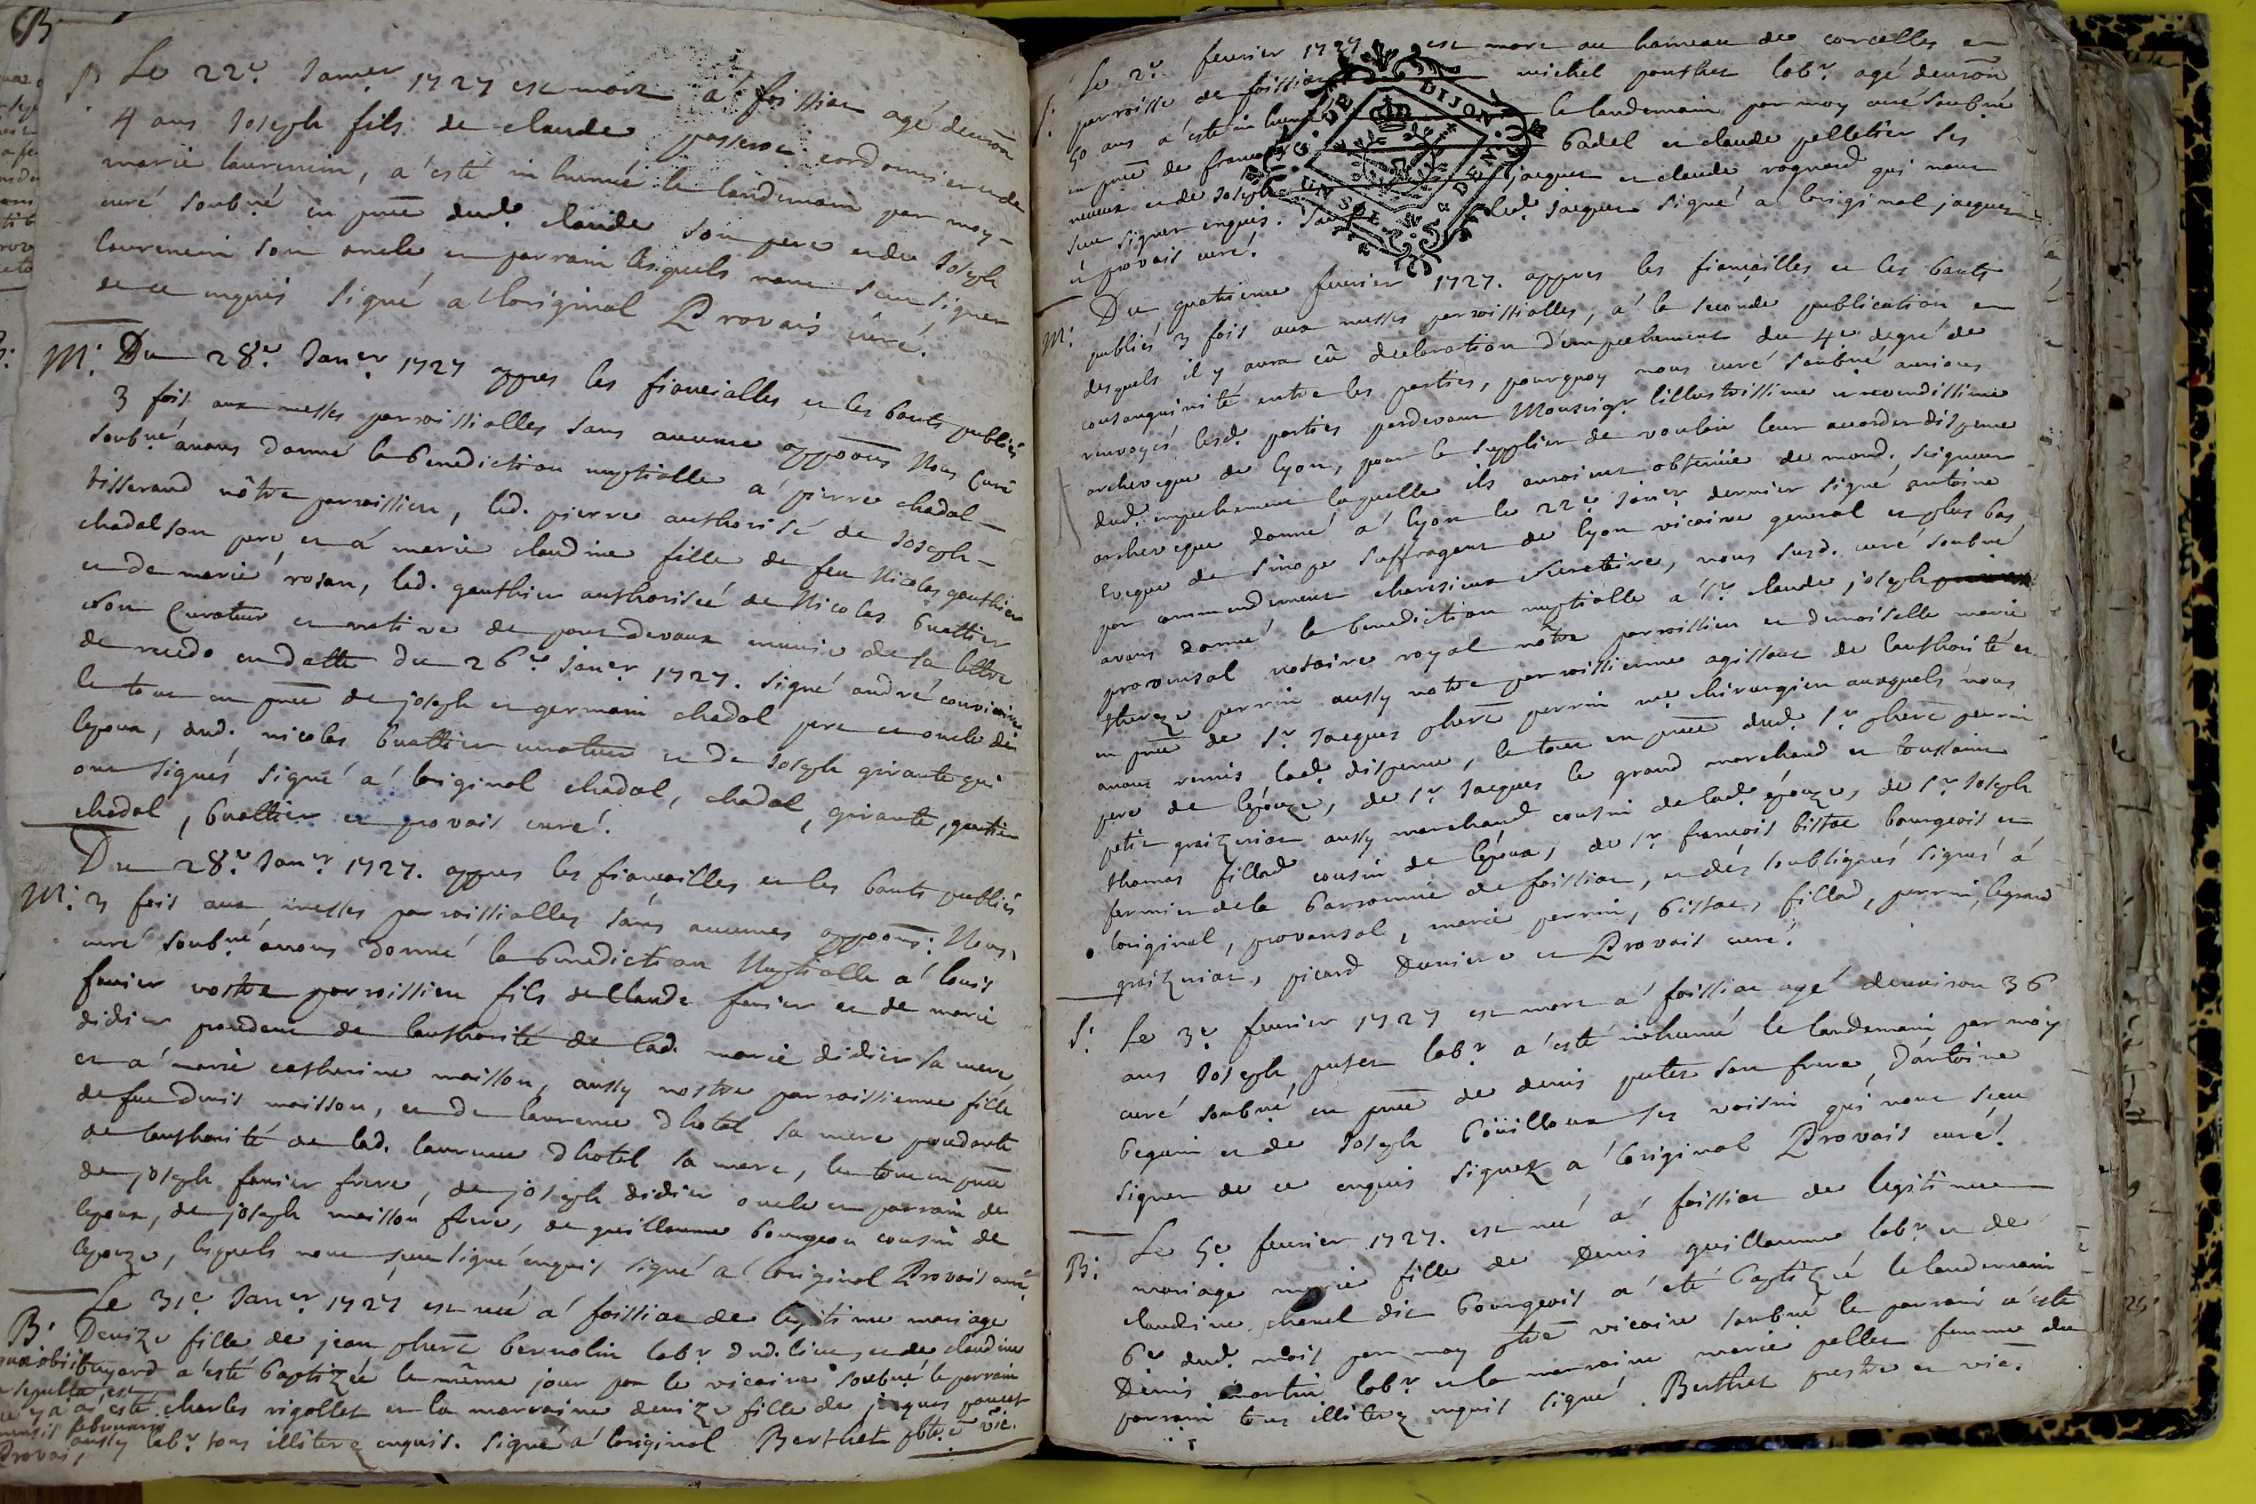 B
S. Le 22e. Janer. 1727 est mort a foissiat agé denvon
4 ans Joseph fils de claude passerat cordonnier et de
marie laurencin, a esté in humé le landemain par moy
curé soubné en pnce dud. claude son pere et de Joseph
laurencin son oncle et parrain lesquels n'ont sceu signer
de ce enquis signé a l'original Provais curé.
M. Du 28e. Janer. 1727 appres les fianciailles et les bants publiés
3 fois aux messes paroissialles sans aucune oppoons Nous Curé
soubné avons donné la benediction nuptialle a pierre chadal
tisserand nôtre paroissien, led. pierre authorisé de Joseph
chadal son pere, et a marie claudine fille de feu Nicolas gauthier
et de marie rosan, lad. gauthier authorisée de Nicolas buattier
son Curateur et native de pont devaux munie de sa lettre
de recedo en datte du 26e. Janer. 1727. signé andré
le tout en pnce de joseph et germain chadal pere et oncle de
lepoux, dud. nicolas buattier curateur et de Joseph girante qui
ont signés signé a l'original chadal, chadal, girante, gautier
chadal, buattier et provais curé.
Du 28e. Janer. 1727. appres les fiancailles et les bants publiés
M. 3 fois aux messes paroissialles sans aucunes oppoons. Nous,
curé soubné avons donné la benediction Nuptialle a louis
favier nostre paroissien fils de Claude favier et de marie
didier procedant de lauthorité de lad. marie didier sa mere
et a marie catherine maisson, aussy nostre paroissienne fille
de feu Denis maisson, et de laurence dhotel sa mere procedante
de lauthorité de lad. laurence dhotel sa mere, le tout en pnce
de joseph favier frere, de joseph didier oncle et parrain de
lepoux, de joseph maisson frere, de guillaume bourgeon cousin de
lepouze, lesquels n'ont sceu signé enquis signé a l'original Provais curé
B. Le 31e. Janer. 1727 est née a foissiat de legitime mariage
Denize fille de jean phert bernolin labr. dud. lieu, et de claudine
buyard a esté baptizée le même jour par le vicaire soubné le parrain
a esté charles rigollet et la marraine denize fille de jaques poncet
aussy labr. tous illiterez enquis. signé a l'original Berthet pbtre et vic.
obiit
sepulta est
februarii
Provais
S. Le 2e. fevrier 1727 est mort au hameau de corcelles en
parroisse de foissiat michel pouthet labr. agé denvon
50 ans a esté in humé le landemain par moy curé soubné
en pnce de francois badel et claude pelletier ses
neveux et de Joseph jacques et claude rognard qui n'ont
sceu signer enquis. led. Jacques signé a l'original jacques
et provais curé.
M. Du quatrieme fevrier 1727. appres les fiancailles et les bants
publiés 3 fois aux messes paroissialles, a la seconde publication en
desquels il y aura eû declaration d'empechement du 4e degré de
consanguinité entre les parties, pourquoy nous curé soubné aurions
renvoyés lesd. parties pardevant Monseigr. l'illustrissime et reverendissime
archeveque de lyon, pour le supplier de vouloir leur accorder dispense
dud. empechement laquelle ils auroient obtenüe de mond. seigneur
archeveque donné a lyon le 22e. Janer. dernier signé antoine
Eveque de sinope suffragant de lyon vicaire general et plus bas
par commendement cherisieux secretaire, nous susd. curé soubné
avons donné la benediction nuptialle a Sr. claude joseph
provensal notaire royal nôtre paroissien et demoiselle marie
thereze perrin aussy notre paroissienne agissant de lauthorité et
en pnce de Sr. Jacques phert perrin me. chirurgien auxquels nous
avons remis lad. dispense, le tout en pnce dud. Sr. phert perrin
pere de lépouze, de Sr. Jacques le grand marchand et toussaint
petit graizeriat aussy marchand cousin de lad. épouze, de Sr. Joseph
thomas fillod cousin de lépoux, de Sr. francois bistac bourgeois et
fermier de la baronnie de foissiat, et des soubsignés signés a
l'original, provansal, marie perrin, bistac, fillod, perrin, legrand
graizeriat, picard Duniere et Provais curé.
S. Le 3e. fevrier 1727 est mort a foissiat agé denviron 36
ans Joseph putet labr. a esté inhumé le landemain par moy
curé soubné en pnce de denis putet son frere, d'antoine
bequin et de Joseph boüilloux ses voisin qui n'ont sceu
signer de ce enquis signez a l'original Provais curé.
B. Le 5e fevrier 1727. est née a foissiat de legitime
mariage marie fille de Denis guillaume labr. et de
claudine chanel dit bourgeois a eté baptizée le landemain
6e dud. mois par moy pbtre vicaire soubné le parrain a esté
Denis martin labr. et la marraine marie pellet femme du
parrain tous illiterez enquis signé. Berthet prestre et vic.
G. DE DIJON
UN SOL